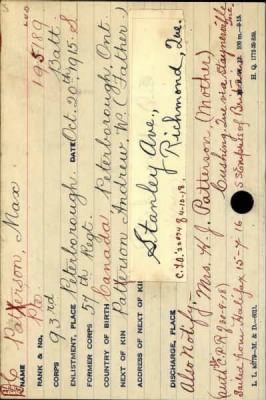 L.U.O.
NAME Patterson, Max.
RANK & NO. Pte. 195189
CORPS 93rd Batt.
ENLISTMENT, PLACE Peterborough. DATE Oct. 20th 1915 S
FORMER CORPS 57th Regt.
COUNTRY OF BIRTH Canada Peterborough, Ont.
NEXT OF KIN Patterson Andrew W. (Father)
ADDRESS OF NEXT OF KIN
Stanley Ave.,
Richmond, Que.
DISCHARGE, PLACE
Also Notify. Mrs. H. J. Patterson, (Mother)
Sailed from Halifax 15-7-16 S.S. Empress of Britain
H. Q. 1772-39-339.